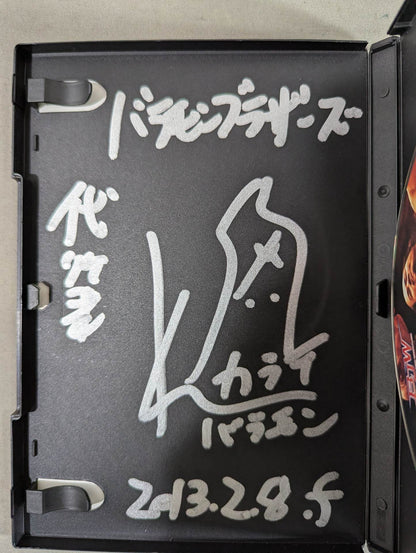 バラモンブラザーズ
代沢
カライ
バラモン
2013.2.8.f